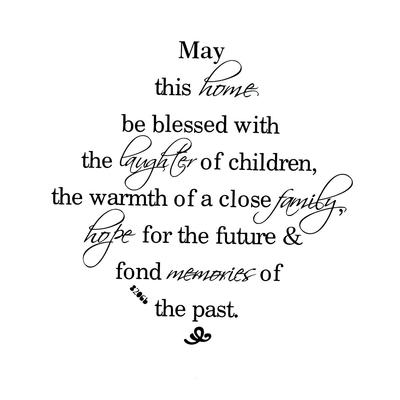 May
this home
be blessed with
the laughter of children,
the warmth of a close family,
hope for the future &
fond memories of
the past.